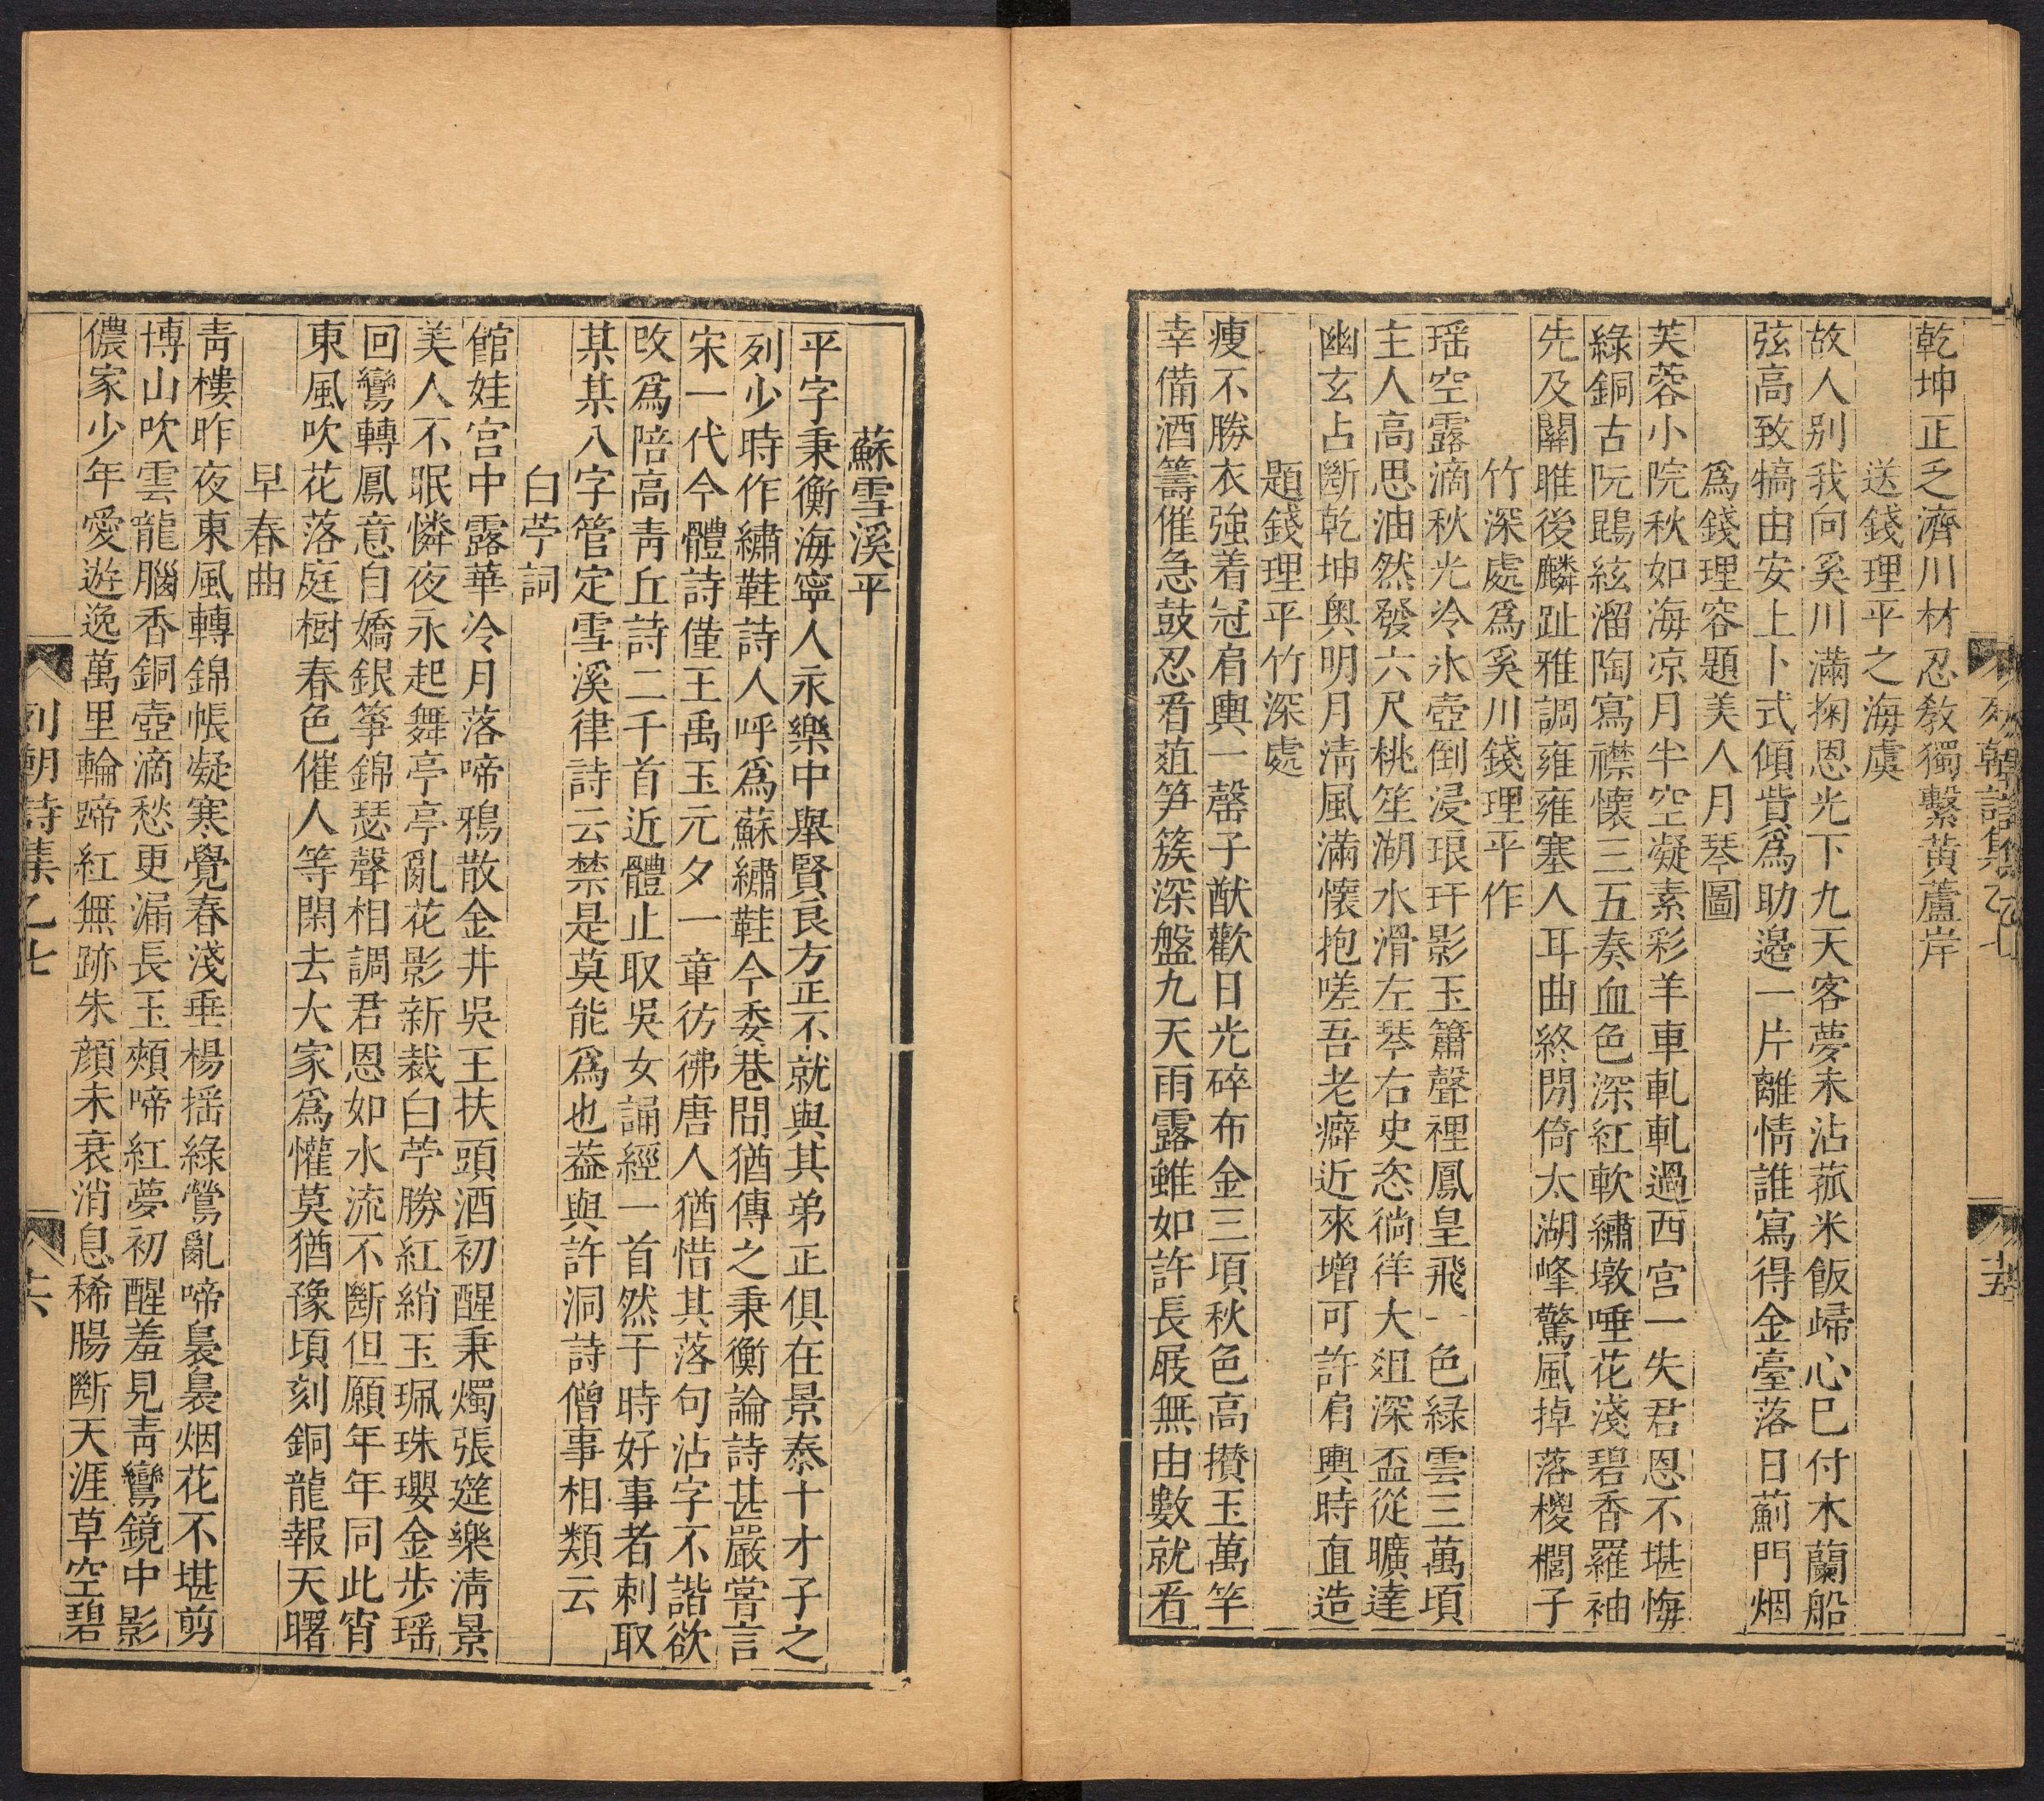 乾坤正乏濟川材忍敎獨繫黃蘆岸
送錢理平之海虞
故人别我向奚川滿掬恩光下九天客夢未沾菰米飯歸心已付木蘭船
弦高致犒由安上卜式傾貲爲助邉一片離情誰寫得金臺落日薊門烟
爲錢理容題美人月琴圖
芙蓉小院秋如海凉月半空凝素彩羊車軋軋過西宫一失君恩不堪悔
綠銅古阮鵾絃溜陶寫襟懷三五奏血色深紅軟繡墩唾花淺碧香羅袖
先及關雎後麟趾雅調雍雍塞人耳曲終閉倚太湖峰驚風掉落椶櫚子
竹深處爲奚川錢理平作
瑶空露滴秋光冷氷壺倒浸琅玕影玉簫聲裡鳳皇飛一色綠雲三萬頃
主人高思油然發六尺桃笙湖水滑左琴右史恣徜徉大爼深盃從曠達
幽玄占斷乾坤奥明月淸風滿懷抱嗟吾老癖近來增可許肩輿時直造
題錢理平竹深處
瘦不勝衣強着冠肩輿一罄子猷歡日光碎布金三項秋色高攅玉萬竿
幸備酒籌催急鼓忍看葅笋簇深盤九天雨露雖如許長展無由數就看
列朝詩集乙七
十五
蘇雪溪平
平字秉衡海寧人永樂中舉賢良方正不就與其弟正俱在景泰十才子之
列少時作繡鞋詩人呼爲蘇繡鞋今委巷間猶傳之秉衡論詩甚嚴嘗言
宋一代今體詩僅王禹玉元夕一章彷彿唐人猶惜其落句沾字不諧欲
改爲陪高靑丘詩二千首近體止取吳女誦經一首然于時好事者刺取
某某八字管定雪溪律詩云禁是莫能爲也葢與許洞詩僧事相類云
白苧詞
館娃宫中露華冷月落啼鴉散金井吳王扶頭酒初醒秉燭張筵樂淸景
美人不眠憐夜永起舞亭亭亂花影新裁白苧勝紅綃玉珮珠瓔金步瑶
回鸞轉鳳意自嬌銀箏錦瑟聲相調君恩如水流不斷但願年年同此宵
東風吹花落庭樹春色催人等閑去大家爲懽莫猶豫頃刻銅龍報天曙
早春曲
靑樓昨夜東風轉錦帳凝寒覺春淺垂楊揺綠鶯亂啼裊裊烟花不堪剪
博山吹雲龍腦香銅壺滴愁更漏長玉頰啼紅夢初醒羞見靑鸞鏡中影
儂家少年愛遊逸萬里輪蹄紅無跡朱顔未衰消息稀腸斷天涯草空碧
列朝詩集乙七
十六